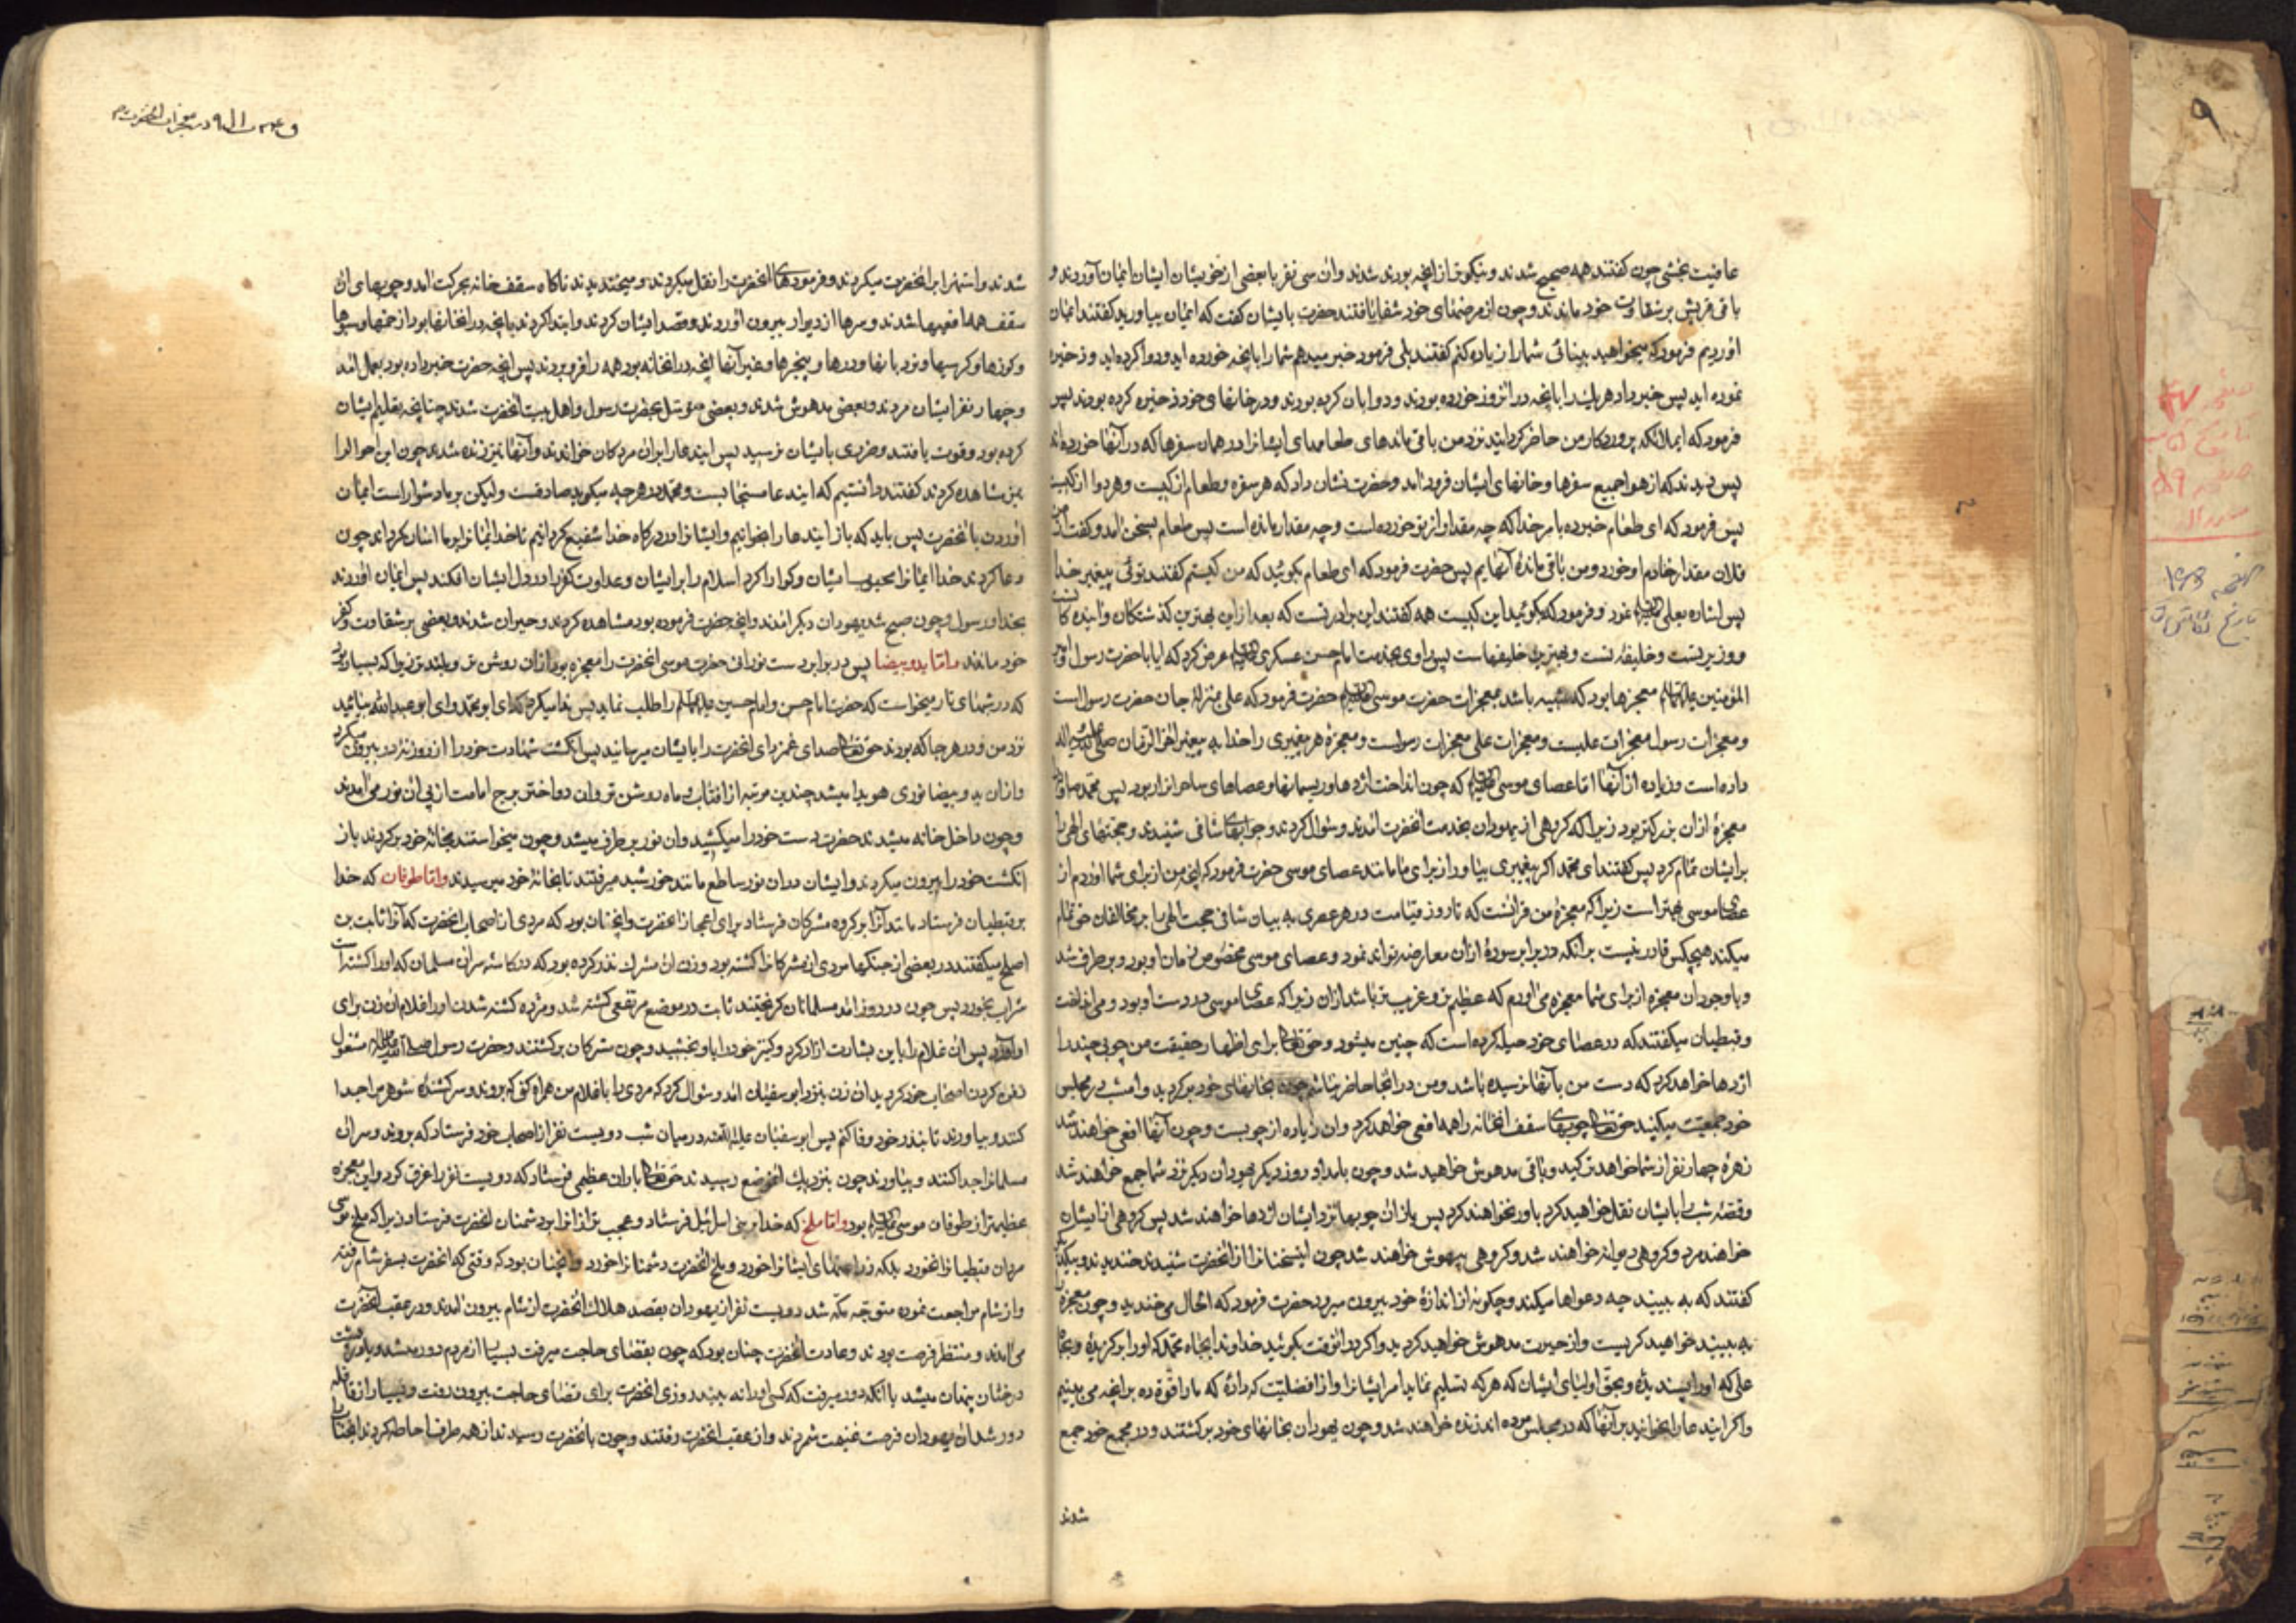 عافیت بخشی چون گفتند همه صحیح شدند و نیکوتر از آنچه بودند شدند وان سی نفر با بعضی از خویشان ایشان ایمان آوردند و
باقی قریش بر شقاوت خود ماندند و چون از مرضهای خود شفا یافتند حضرت بایشان گفت که ایمان بیاورید گفتند ایمان
اوردیم فرمود که میخواهید بینائی شما را زیاده کنم گفتند بلی فرمود خبر میدهم شما را بآنچه خورده اید و دوا کرده اید و ذخیره
نموده اید پس خبر داد هر یك را بآنچه در انروز خورده بودند و دوا بان کرده بودند و در خانهای خود ذخیره کرده بودند پس
فرمود که ای ملائکه پروردکار من حاضر کردانید نزد من باقی ماندهای طعامهای ایشانرا در همان سفرها که در آنها خورده اند
پس دیدند که از هوا جمیع سفرها و خانهای ایشان فرود آمد و حضرت نشان داد که هر سفره و طعام از کیست و هر دوا از کیست
پس فرمود که ای طعام خبر ده بامر خدا که چه مقدار از تو خورده است و چه مقدار مانده است پس طعام بسخن آمد و گفت از من
فلان مقدار خادم او خورد و من باقی ماندۀ آنهایم پس حضرت فرمود که ای طعام بگوئید که من کیستم گفتند توئی پیغمبر خدا
پس اشاره بعلی نمود و فرمود که بگوئید این کیست همه گفتند این برادر تست که بعد از تو بهترین گذشتگان و آینده کانست
و وزیر تست و خلیفۀ تست و بهترین خلیفهاست پس راوی بخدمت امام حسن عسکری عرض کرد که ایا با حضرت رسول و امیر
المؤمنین علیهما السلام معجزها بود که شبیه باشد بمعجزات حضرت موسی حضرت فرمود که علی بمنزلۀ جان حضرت رسول است
و معجزات رسول معجزات علیست و معجزات علی معجزات رسولست و معجزۀ هر پیغمبری را خدا به پیغمبر آخر الزمان صلی الله علیه و آله
داده است و زیاده از آنها اما عصای موسی که چون انداخت اژدها و ریسمانها و عصاهای ساحرانرا ربود پس محمد را
معجزۀ ازان بزرکتر بود زیرا که گروهی از یهودان بخدمت آنحضرت آمدند و سؤال کردند و جوابهای شافی شنیدند و حجتهای الهی را
بر ایشان تمام کرد پس گفتند ای محمد اگر پیغمبری بیاور از برای ما مانند عصای موسی حضرت فرمود که آنچه من از برای شما آوردم از
عصای موسی بهتر است زیرا که معجزۀ من قرآنست که تا روز قیامت در هر عصری به بیان شافی حجت الهی را بر مخالفان حق تمام
میکند هیچکس قادر نیست بر آنکه در برابر سورۀ ازان معارضه تواند نمود و عصای موسی مخصوص زمان او بود و بر طرف شد
و باوجود ان معجزه از برای شما معجزه می اورم که عظیم تر و غریب تر باشد ازان زیرا که عصای موسی در دست او بود و می انداخت
و قبطیان میگفتند که در عصای خود حیله کرده است که چنین میشود و حق تعالی برای اظهار حقیقت من چوبی چند را
اژدها خواهد کرد که دست من بآنها نرسیده باشد و من در آنجا حاضر نباشم چون بخانهای خود برگردید و امشب در مجلس
خود جمعیت میکنید حق تعالی چوبهای سقف آنخانه را همه افعی خواهد کرد وان زیاده از چوبست و چون آنها افعی خواهند شد
زهرۀ چهار نفر از شما خواهد ترکید و باقی مدهوش خواهید شد و چون بامداد روز دیگر یهودان دیگر نزد شما جمع خواهند شد
و قصۀ شب را بایشان نقل خواهید کرد باور نخواهند کرد پس باز آن چوبها نزد ایشان اژدها خواهند شد پس گروهی از ایشان
خواهند مرد و گروهی دیوانه خواهند شد و گروهی بیهوش خواهند شد چون اینسخنانرا از آنحضرت شنیدند خندیدند و بیکدیگر
گفتند که به بینید چه دعواها میکند و چگونه از اندازۀ خود بیرون میرود حضرت فرمود که الحال می خندید و چون معجزه را
به بینید خواهید گریست و از حیرت مدهوش خواهید گردید و اگر در انوقت بگوئید خداوندا بجاه محمد که او را بر گزیدۀ و بجاه
علی که او را پسندیدۀ و بحق اولیای ایشان که هر که تسلیم نماید امر ایشانرا او را فضیلت کردانۀ که ما را قوت ده بر آنچه می بینیم
و اگر ایندعا را بخوانید بر آنها که در مجلس مرده اند زنده خواهند شد و چون یهودان بخانهای خود برگشتند و در مجمع خود جمع
شدند
در معجزات آنحضرت
شدند و استهزا بر آنحضرت میکردند و فرمودهای آنحضرت را نقل میکردند و میخندیدند ناگاه سقف خانه بحرکت آمد و چوبهای آن
سقف همه افعیها شدند و سرها از دیوار بیرون آوردند و قصد ایشان کردند و ابتدا کردند بآنچه در آنخانها بود از خمها و سبوها
و کوزها و کرسیها و نردبانها و درها و پنجرها و غیر آنها آنچه در آنخانه بود همه را فرو بردند پس آنچه حضرت خبر داده بود بعمل آمد
و چهار نفر ایشان مردند و بعضی مدهوش شدند و بعضی متوسل بحضرت رسول و اهل بیت آنحضرت شدند چنانچه تعلیم ایشان
کرده بود و قوت یافتند و ضرری بایشان نرسید پس ایندعا را بران مردگان خواندند و آنها نیز زنده شدند چون این احوال را
نیز مشاهده کردند گفتند دانستیم که ایندعا مستجابست و محمد در هر چه میگوید صادقست و لیکن بر ما دشوار است ایمان
آوردن بآنحضرت پس باید که باز ایندعا را بخوانیم و ایشانرا در درگاه خدا شفیع گردانیم تا خدا ایمانرا بر ما آسان گرداند چون
دعا کردند خدا ایمانرا محبوب ایشان و گوارا کرد اسلام را بر ایشان و عداوت کفر را در دل ایشان افکند پس ایمان آوردند
بخدا و رسول و چون صبح شد یهودان دیگر آمدند و آنچه حضرت فرموده بود مشاهده کردند و حیران شدند و بعضی بر شقاوت و کفر
خود ماندند و اما ید و بیضا پس در برابر دست نورانی حضرت موسی آنحضرت را معجزه بود ازان روشن تر و بلندتر زیرا که بسیار بود
که در شبهای تار میخواست که حضرت امام حسن و امام حسین علیهما السلام را طلب نماید پس ندا میکرد که ای ابو محمد و ای ابو عبد الله بیائید
نزد من و در هر جا که بودند حق تعالی صدای غمزدای آنحضرت را بایشان میرسانید پس انگشت شهادت خود را از روزنۀ در بیرون میکرد
و ازان ید و بیضا نوری هویدا میشد چندین مرتبه از آفتاب و ماه روشن تر و ان دو اختر برج امامت از پی آن نور می آمدند
و چون داخل خانه میشدند حضرت دست خود را میکشید وان نور بر طرف میشد و چون میخواستند بخانۀ خود برگردند باز
انگشت خود را بیرون میکردند و ایشان دران نور ساطع مانند خورشید میرفتند تا بخانۀ خود میرسیدند و اما طوفان که خدا
بر قبطیان فرستاد مانند آنرا بر گروه مشرکان فرستاد برای اعجاز آنحضرت و آنچنان بود که مردی از اصحاب آنحضرت که آنرا ثابت بن
افلح میگفتند در بعضی از جنگها مردی از مشرکانرا کشته بود و زن آن مشرك نذر کرده بود که در کاسۀ سر آن مسلمان که او را کشته است
شراب بخورد پس چون در روز احد مسلمانان گریختند ثابت در موضع مرتفعی کشته شد و مژده کشته شدن او را غلام آن زن برای
او آورد پس آن غلام را باین بشارت آزاد کرد و کنیز خود را باو بخشید و چون مشرکان برگشتند و حضرت رسول صلی الله علیه و آله مشغول
دفن کردن اصحاب خود گردید آن زن بنزد ابو سفیان آمد و سؤال کرد که مردی را با غلام من همراه کن که بروند و سر کشندۀ شوهر مرا جدا
کنند و بیاورند تا بنذر خود وفا کنم پس ابو سفیان علیه اللعنه در میان شب دویست نفر از اصحاب خود فرستاد که بروند و سر آن
مسلمانرا جدا کنند و بیاورند چون بنزدیك آنموضع رسیدند حق تعالی باران عظیمی فرستاد که دویست نفر را غرق کرد و این معجزه
عظیمتر از طوفان موسی بود و اما ملخ که خدا بر بنی اسرائیل فرستاد و عجیب تر ازانرا بر دشمنان آنحضرت فرستاد زیرا که ملخ موسی
مردان قبطیانرا نخورد بلکه زراعتهای ایشانرا خورد و ملخ آنحضرت دشمنانرا خورد و آنچنان بود که وقتی که آنحضرت بسفر شام رفته
و از شام مراجعت نموده متوجه مکه شد دویست نفر از یهودان بقصد هلاك آنحضرت از شام بیرون آمدند و در عقب آنحضرت
می آمدند و منتظر فرصت بودند و عادت آنحضرت چنان بود که چون بقضای حاجت میرفت بسیار از مردم دور میشد و یا در پشت
درختان پنهان میشد یا آنکه دور میرفت که کسی او را نه بیند روزی آنحضرت برای قضای حاجت بیرون رفت و بسیار از قافله
دور شد آن یهودان فرصت غنیمت شمردند و از عقب آنحضرت رفتند و چون بآنحضرت رسیدند از همه طرف احاطه کردند آنجناب را